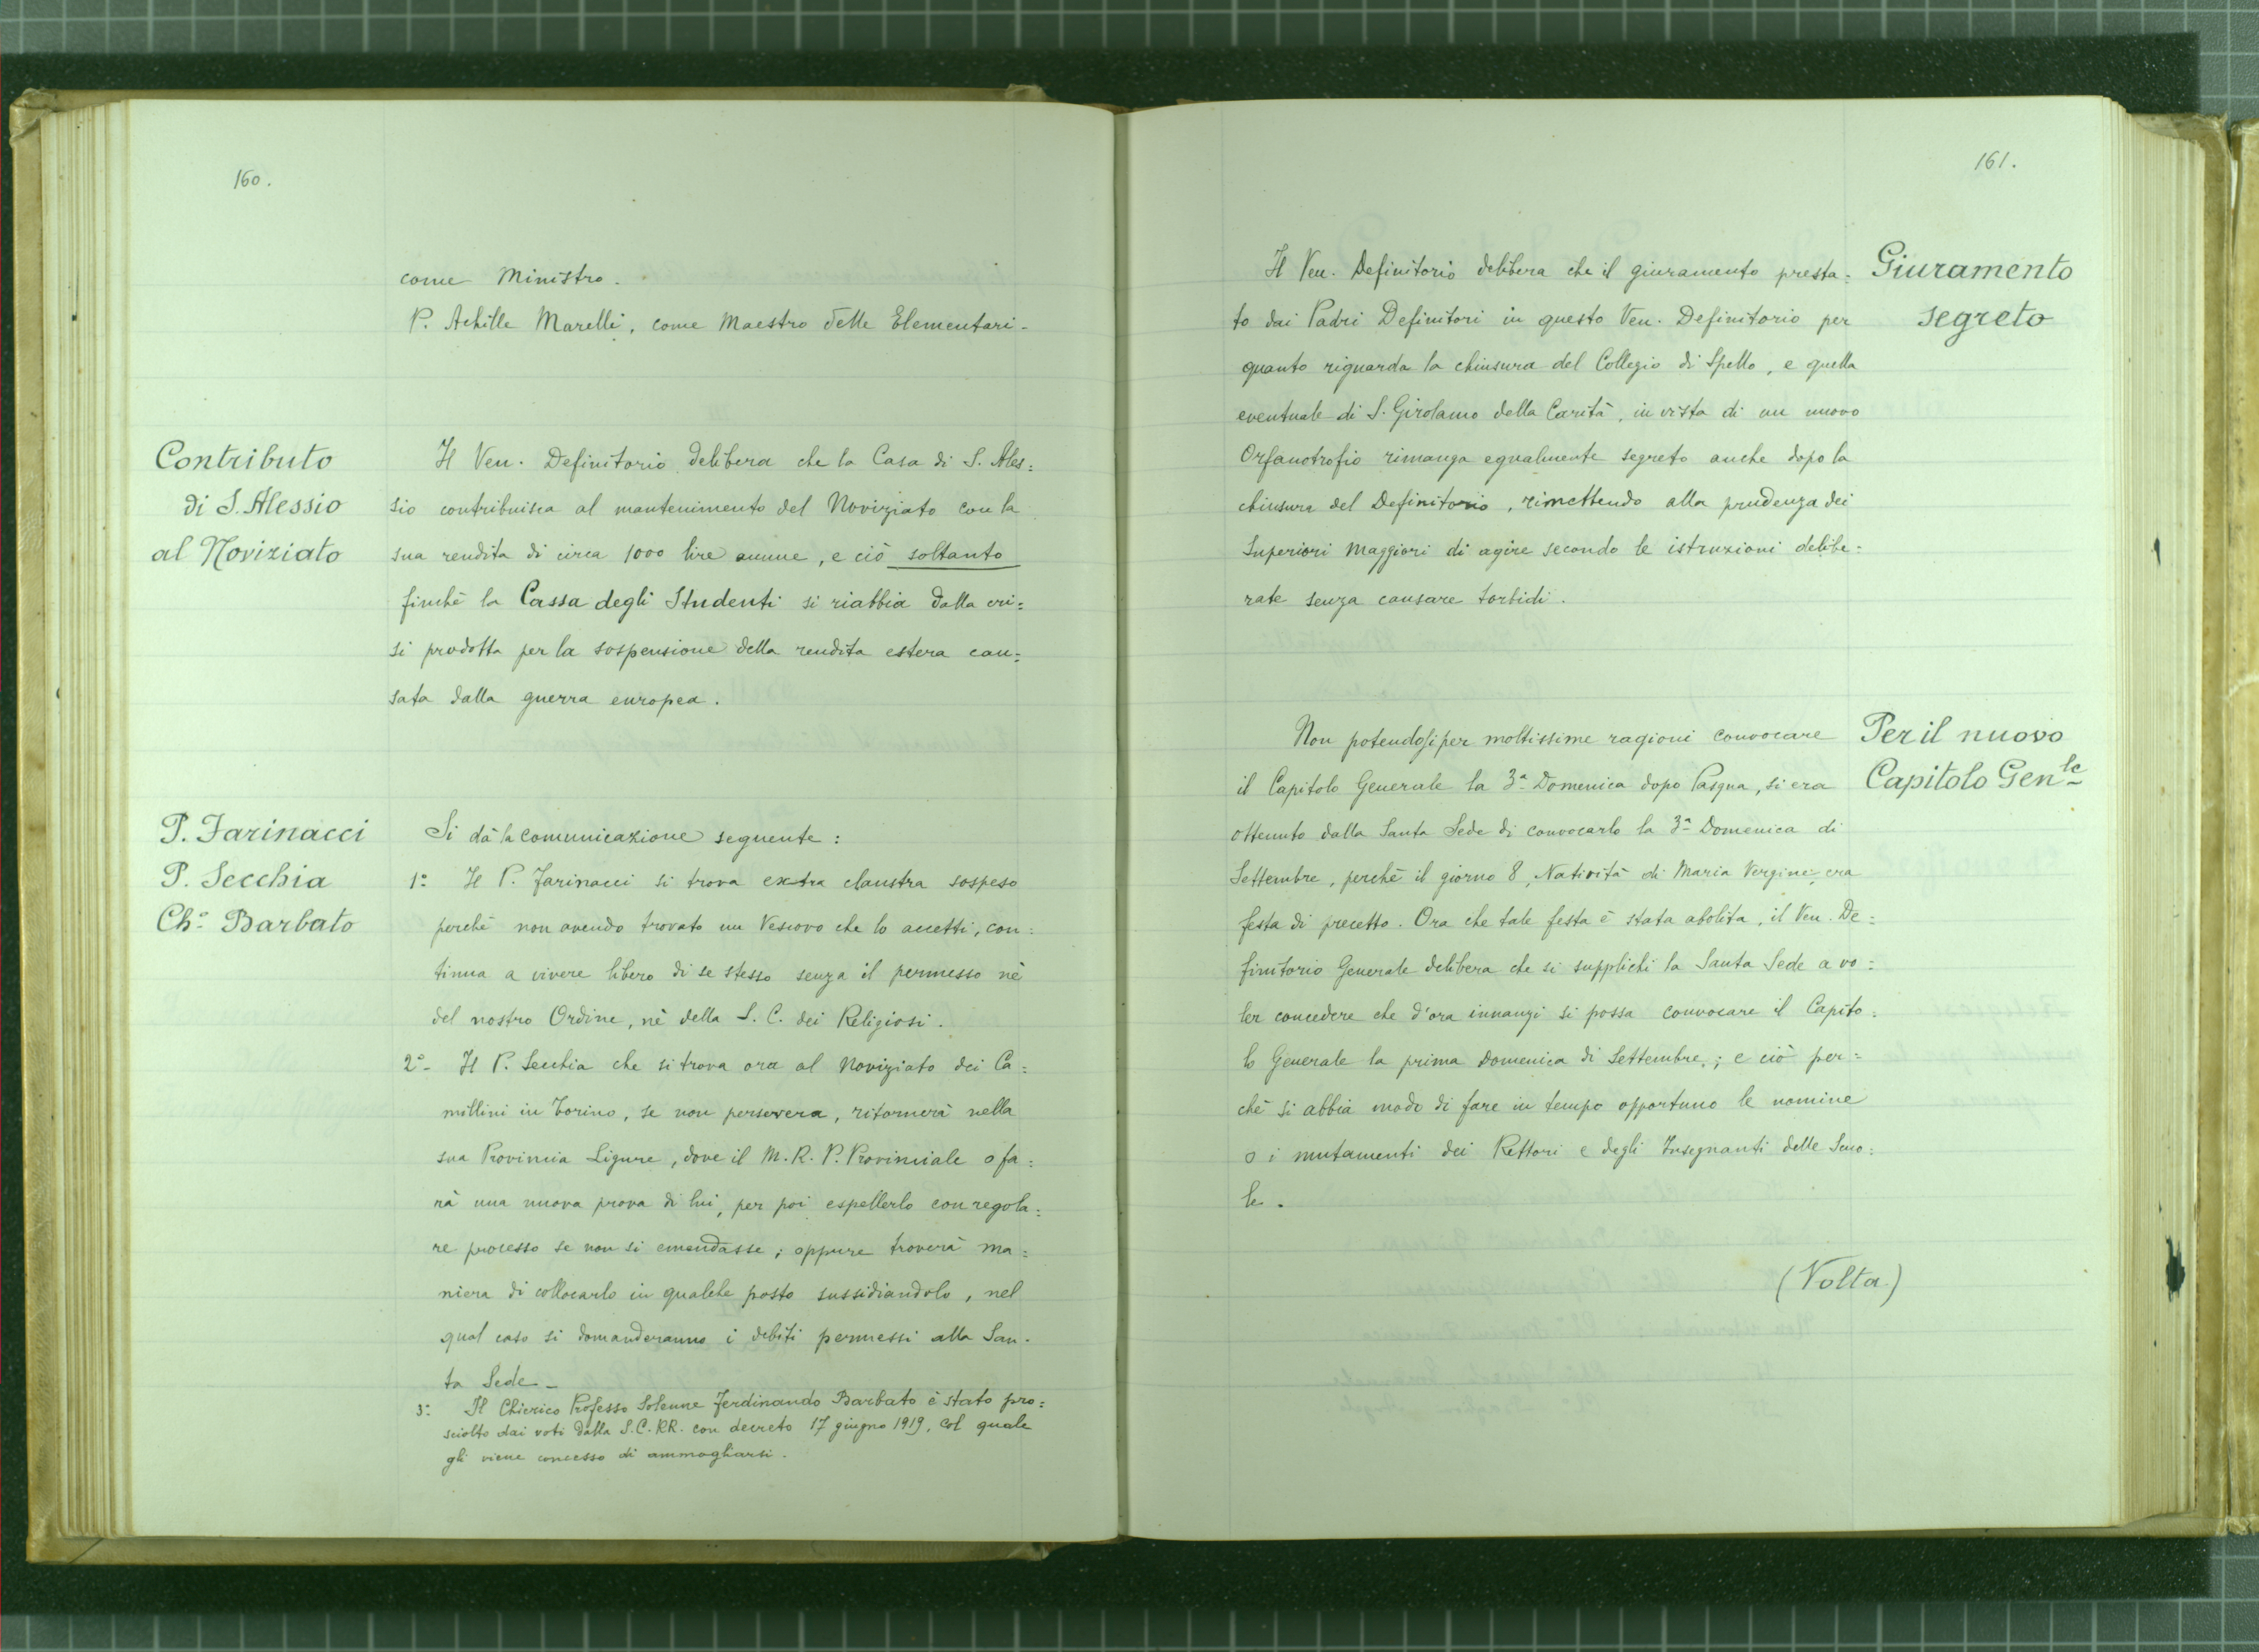 160.
come Ministro.
P. Achille Marelli, come Maestro delle Elementari.
Contributo
di S. Alessio
al Noviziato
Il Ven. Definitorio delibera che la Casa di S. Ales=
sio contribuisca al mantenimento del Noviziato con la
sua rendita di circa 1000 lire annue, e ciò soltanto
finchè la Cassa degli Studenti si riabbia dalla cri=
si prodotta per la sospensione della rendita estera cau=
sata dalla guerra europea.
P. Farinacci
P. Secchia
Ch.º Barbato
Si dà la comunicazione seguente:
1º Il P. Farinacci si trova extra claustra sospeso
perchè non avendo trovato un Vescovo che lo accetti, con=
tinua a vivere libero di se stesso senza il permesso nè
del nostro Ordine, nè della S. C. dei Religiosi.
2º- Il P. Secchia che si trova ora al Noviziato dei Ca=
millini in Torino, se non persevera, ritornerà nella
sua Provincia Ligure, dove il M. R. P. Provinciale o fa=
rà una nuova prova di lui, per poi espellerlo con regola=
re processo se non si emendasse; oppure troverà ma=
niera di collocarlo in qualche posto sussidiandolo, nel
qual caso si domanderanno i debiti permessi alla San-
ta Sede_
3º Il Chierico Professo Solenne Ferdinando Barbato è stato pro=
sciolto dai voti dalla S.C.RR. con decreto 17 giugno 1919, col quale
gli viene concesso di ammogliarsi.
161.
Giuramento
segreto
Il Ven. Definitorio delibera che il giuramento presta=
to dai Padri Definitori in questo Ven. Definitorio per
quanto riguarda la chiusura del Collegio di Spello, e quella
eventuale di S. Girolamo della Carità, in vista di un nuovo
Orfanotrofio rimanga egualmente segreto anche dopo la
chiusura del Definitorio, rimettendo alla prudenza dei
Superiori Maggiori di agire secondo le istruzioni delibe=
rate senza causare torbidi.
Per il nuovo
Capitolo Gen.le
Non potendosi per moltissime ragioni convocare
il Capitolo Generale la 3ª Domenica dopo Pasqua, si era
ottenuto dalla Santa Sede di convocarlo la 3ª Domenica di
Settembre, perchè il giorno 8, Natività di Maria Vergine, era
festa di precetto. Ora che tale festa è stata abolita, il Ven. De=
finitorio Generale delibera che si supplichi la Santa Sede a vo=
ler concedere che d'ora innanzi si possa convocare il Capito=
lo Generale la prima Domenica di Settembre; e ciò per=
chè si abbia modo di fare in tempo opportuno le nomine
o i mutamenti dei Rettori e degli Insegnanti delle Scuo=
le.
(Volta)